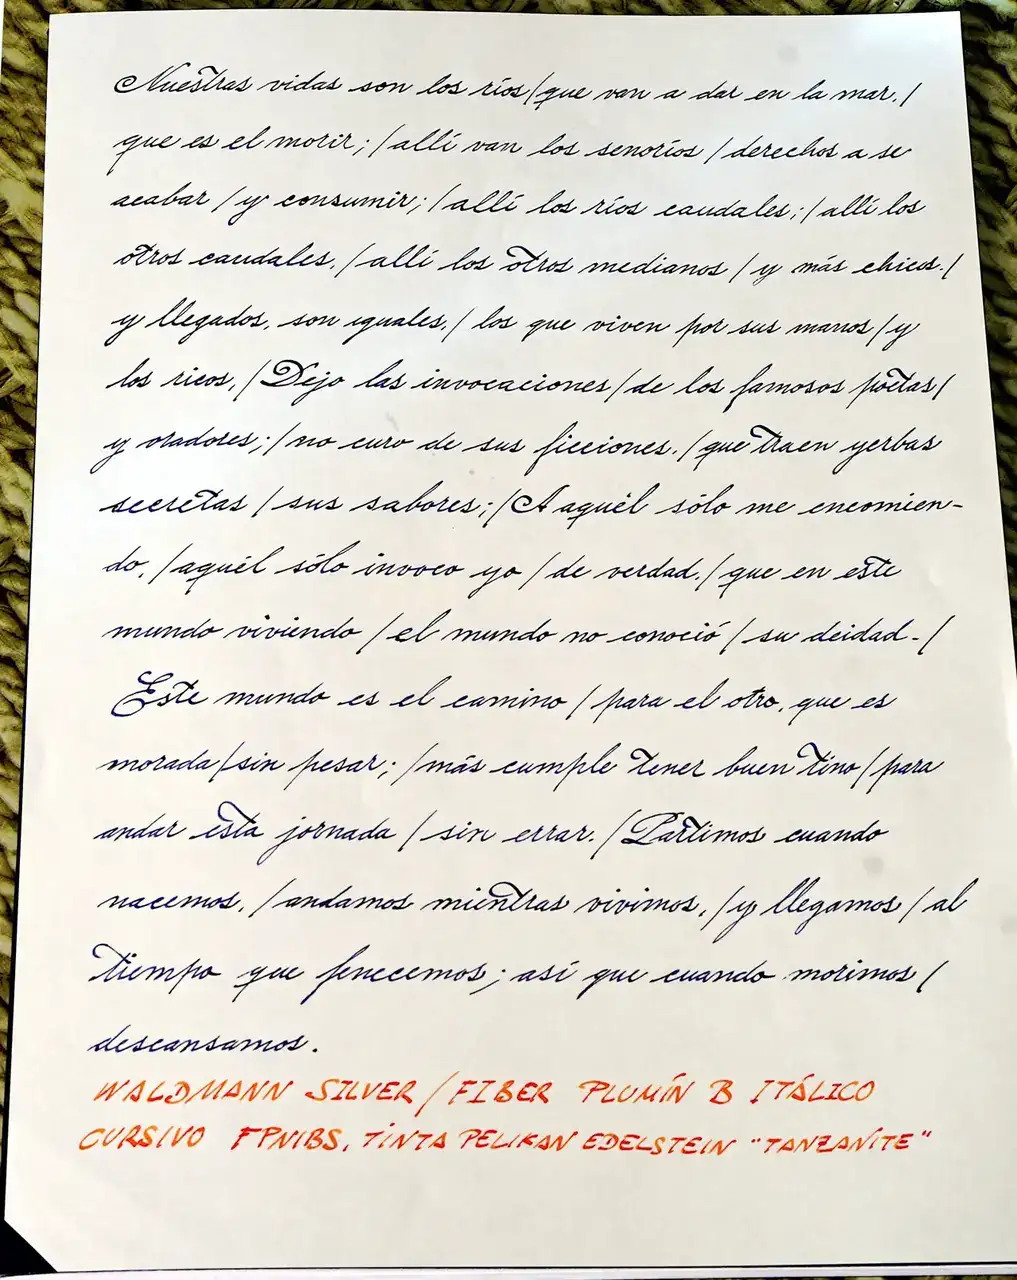 Nuestras vidas son los ríos/que van a dar en la mar,/
que es el morir;/allí van los senoríos/derechos a se
acabar/y consumir;/allí los ríos caudales;/allí los
otros caudales,/allí los otros medianos/y más chicos./
y llegados, son iguales,/los que viven por sus manos/y
los ricos,/Dejo las invocaciones/de los famosos poetas/
y oradores;/no curo de sus ficciones,/que traen yerbas
secretas/sus sabores;/A aquél sólo me encomien-
do,/aquél sólo invoco yo/de verdad,/que en este
mundo viviendo/el mundo no conoció/su deidad-/
Este mundo es el camino/para el otro, que es
morada/sin pesar;/más cumple tener buen tino/para
andar esta jornada/sin errar./Partimos cuando
nacemos,/andamos mientras vivimos,/y llegamos/al
tiempo que fenecemos; así que cuando morimos/
descansamos.
WALDMANN SILVER/FIBER PLUMÍN B ITÁLICO
CURSIVO FPNIBS, TINTA PELIKAN EDELSTEIN "TANZANITE"